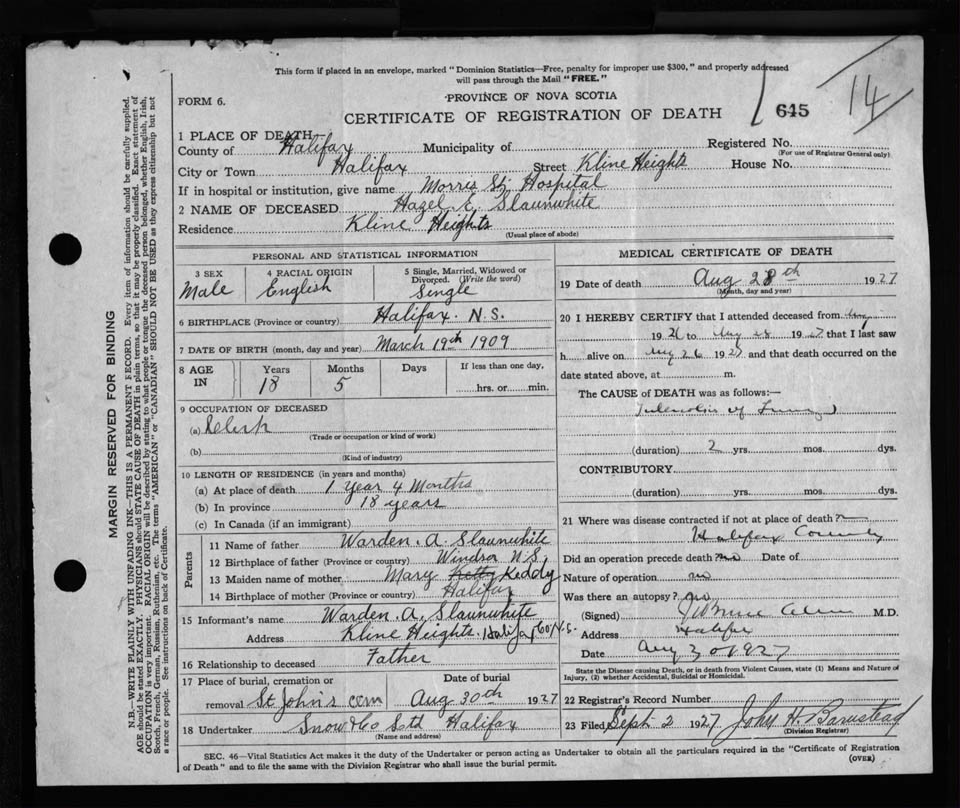 This form if placed in an envelope, marked "Dominion Statistics—Free, penalty for improper use $300," and properly addressed
will pass through the Mail "FREE."
14
FORM 6.
PROVINCE OF NOVA SCOTIA
CERTIFICATE OF REGISTRATION OF DEATH
645
1 PLACE OF DEATH
County of Halifax Municipality of Registered No.
(For use of Registrar General only)
City or Town Halifax Street Kline Heights House No.
If in hospital or institution, give name Morris St. Hospital
2 NAME OF DECEASED Hazel E. Slaunwhite
Residence Kline Heights
(Usual place of abode)
PERSONAL AND STATISTICAL INFORMATION
3 SEX 4 RACIAL ORIGIN 5 Single, Married, Widowed or
Divorced. (Write the word)
Male English Single
6 BIRTHPLACE (Province or country) Halifax. N.S.
7 DATE OF BIRTH (month, day and year) March 19th 1909
8 AGE IN Years Months Days If less than one day,
18 5 hrs. or min.
9 OCCUPATION OF DECEASED
(a)
(Trade or occupation or kind of work)
(b)
(Kind of industry)
10 LENGTH OF RESIDENCE (in years and months)
(a) At place of death 1 Year 4 Months
(b) In province 18 years
(c) In Canada (if an immigrant)
Parents
11 Name of father Warden. A. Slaunwhite
12 Birthplace of father (Province or country) Windsor N.S.
13 Maiden name of mother Mary Ketty Keddy
14 Birthplace of mother (Province or country) Halifax
15 Informant's name Warden A. Slaunwhite
Address Kline Heights Halifax Co. N.S.
16 Relationship to deceased Father
17 Place of burial, cremation or Date of burial
removal St. John's cem Aug 30th 1927
18 Undertaker Snow & Co Ltd Halifax
(Name and address)
MEDICAL CERTIFICATE OF DEATH
19 Date of death Aug 28th 1927
(Month, day and year)
20 I HEREBY CERTIFY that I attended deceased from Aug
1926 to Aug 28 1927 that I last saw
h alive on Aug 26 1927 and that death occurred on the
date stated above, at m.
The CAUSE OF DEATH was as follows:—
of Lungs
(duration) 2 yrs. mos. dys.
CONTRIBUTORY
(duration) yrs. mos. dys.
21 Where was disease contracted if not at place of death?
Halifax County
Did an operation precede death no Date of
Nature of operation no
Was there an autopsy? no
(Signed) M.D.
Address Halifax
Date Aug 30 1927
State the Disease causing Death, or in death from Violent Causes, state (1) Means and Nature of
Injury, (2) whether Accidental, Suicidal or Homicidal.
22 Registrar's Record Number
23 Filed Sept 2 1927 John H. Barnstead
(Division Registrar)
SEC. 46—Vital Statistics Act makes it the duty of the Undertaker or person acting as Undertaker to obtain all the particulars required in the "Certificate of Registration
of Death" and to file the same with the Division Registrar who shall issue the burial permit.
(OVER)
MARGIN RESERVED FOR BINDING
N.B.—WRITE PLAINLY WITH UNFADING INK—THIS IS A PERMANENT RECORD. Every item of information should be carefully supplied.
AGE should be stated EXACTLY. PHYSICIANS should STATE CAUSE OF DEATH in plain terms, so that it may be properly classified. Exact statement of
OCCUPATION is very important. RACIAL ORIGIN will be described by stating to what people or tongue the deceased person belonged, whether English, Irish,
Scotch, French, German, Russian, Ruthenian, etc. The terms "AMERICAN" or "CANADIAN" SHOULD NOT BE USED as they express citizenship but not
a race or people. See instructions on back of Certificate.